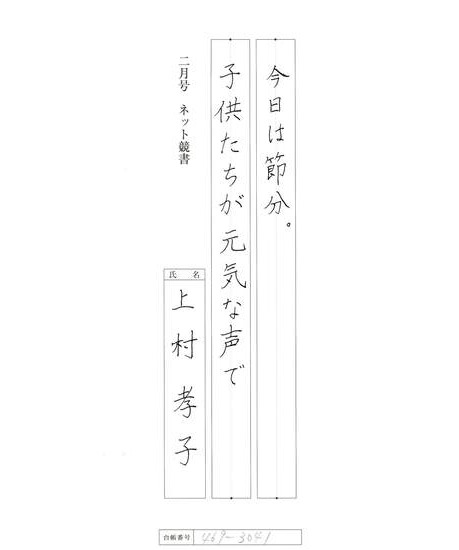 今日は節分。
子供たちが元気な声で
二月号 ネット競書
氏名
上村孝子
台帳番号 469-3041